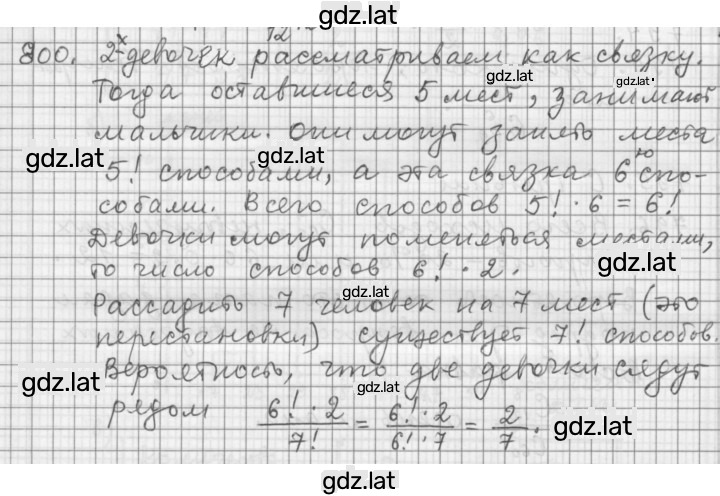 gdz.lat
12
800. 2-х девочек рассматриваем как связку.
gdz.lat gdz.lat
Тогда оставшиеся 5 мест, занимают
мальчики. Они могут занять места
gdz.lat gdz.lat
5! способами, а эта связка 6ю спо-
собами. Всего способов 5! · 6 = 6!
Девочки могут поменяться местами,
то число способов 6! · 2.
gdz.lat
gdz.lat
Рассадить 7 человек на 7 мест (это
перестановки) существует 7! способов.
Вероятность, что две девочки сядут
gdz.lat gdz.lat
рядом 6! · 2 / 7! = 6! · 2 / 6! · 7 = 2 / 7.
gdz.lat
gdz.lat